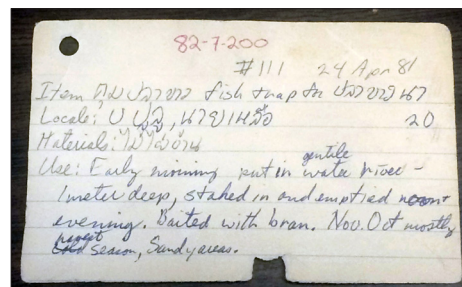 82-7-200
#111 24 Apr 81
Item ตุมปลาขาว fish trap for ปลาขาวนา
Locale: บ ปูลู, นายเหลือ 20
Materials: ไม้ไผ่บ้าน
Use: Early morning put in gentile water river -
1 meter deep, staked in and emptied noon +
evening. Baited with bran. Nov. Oct mostly
harvest season, Sandy areas.